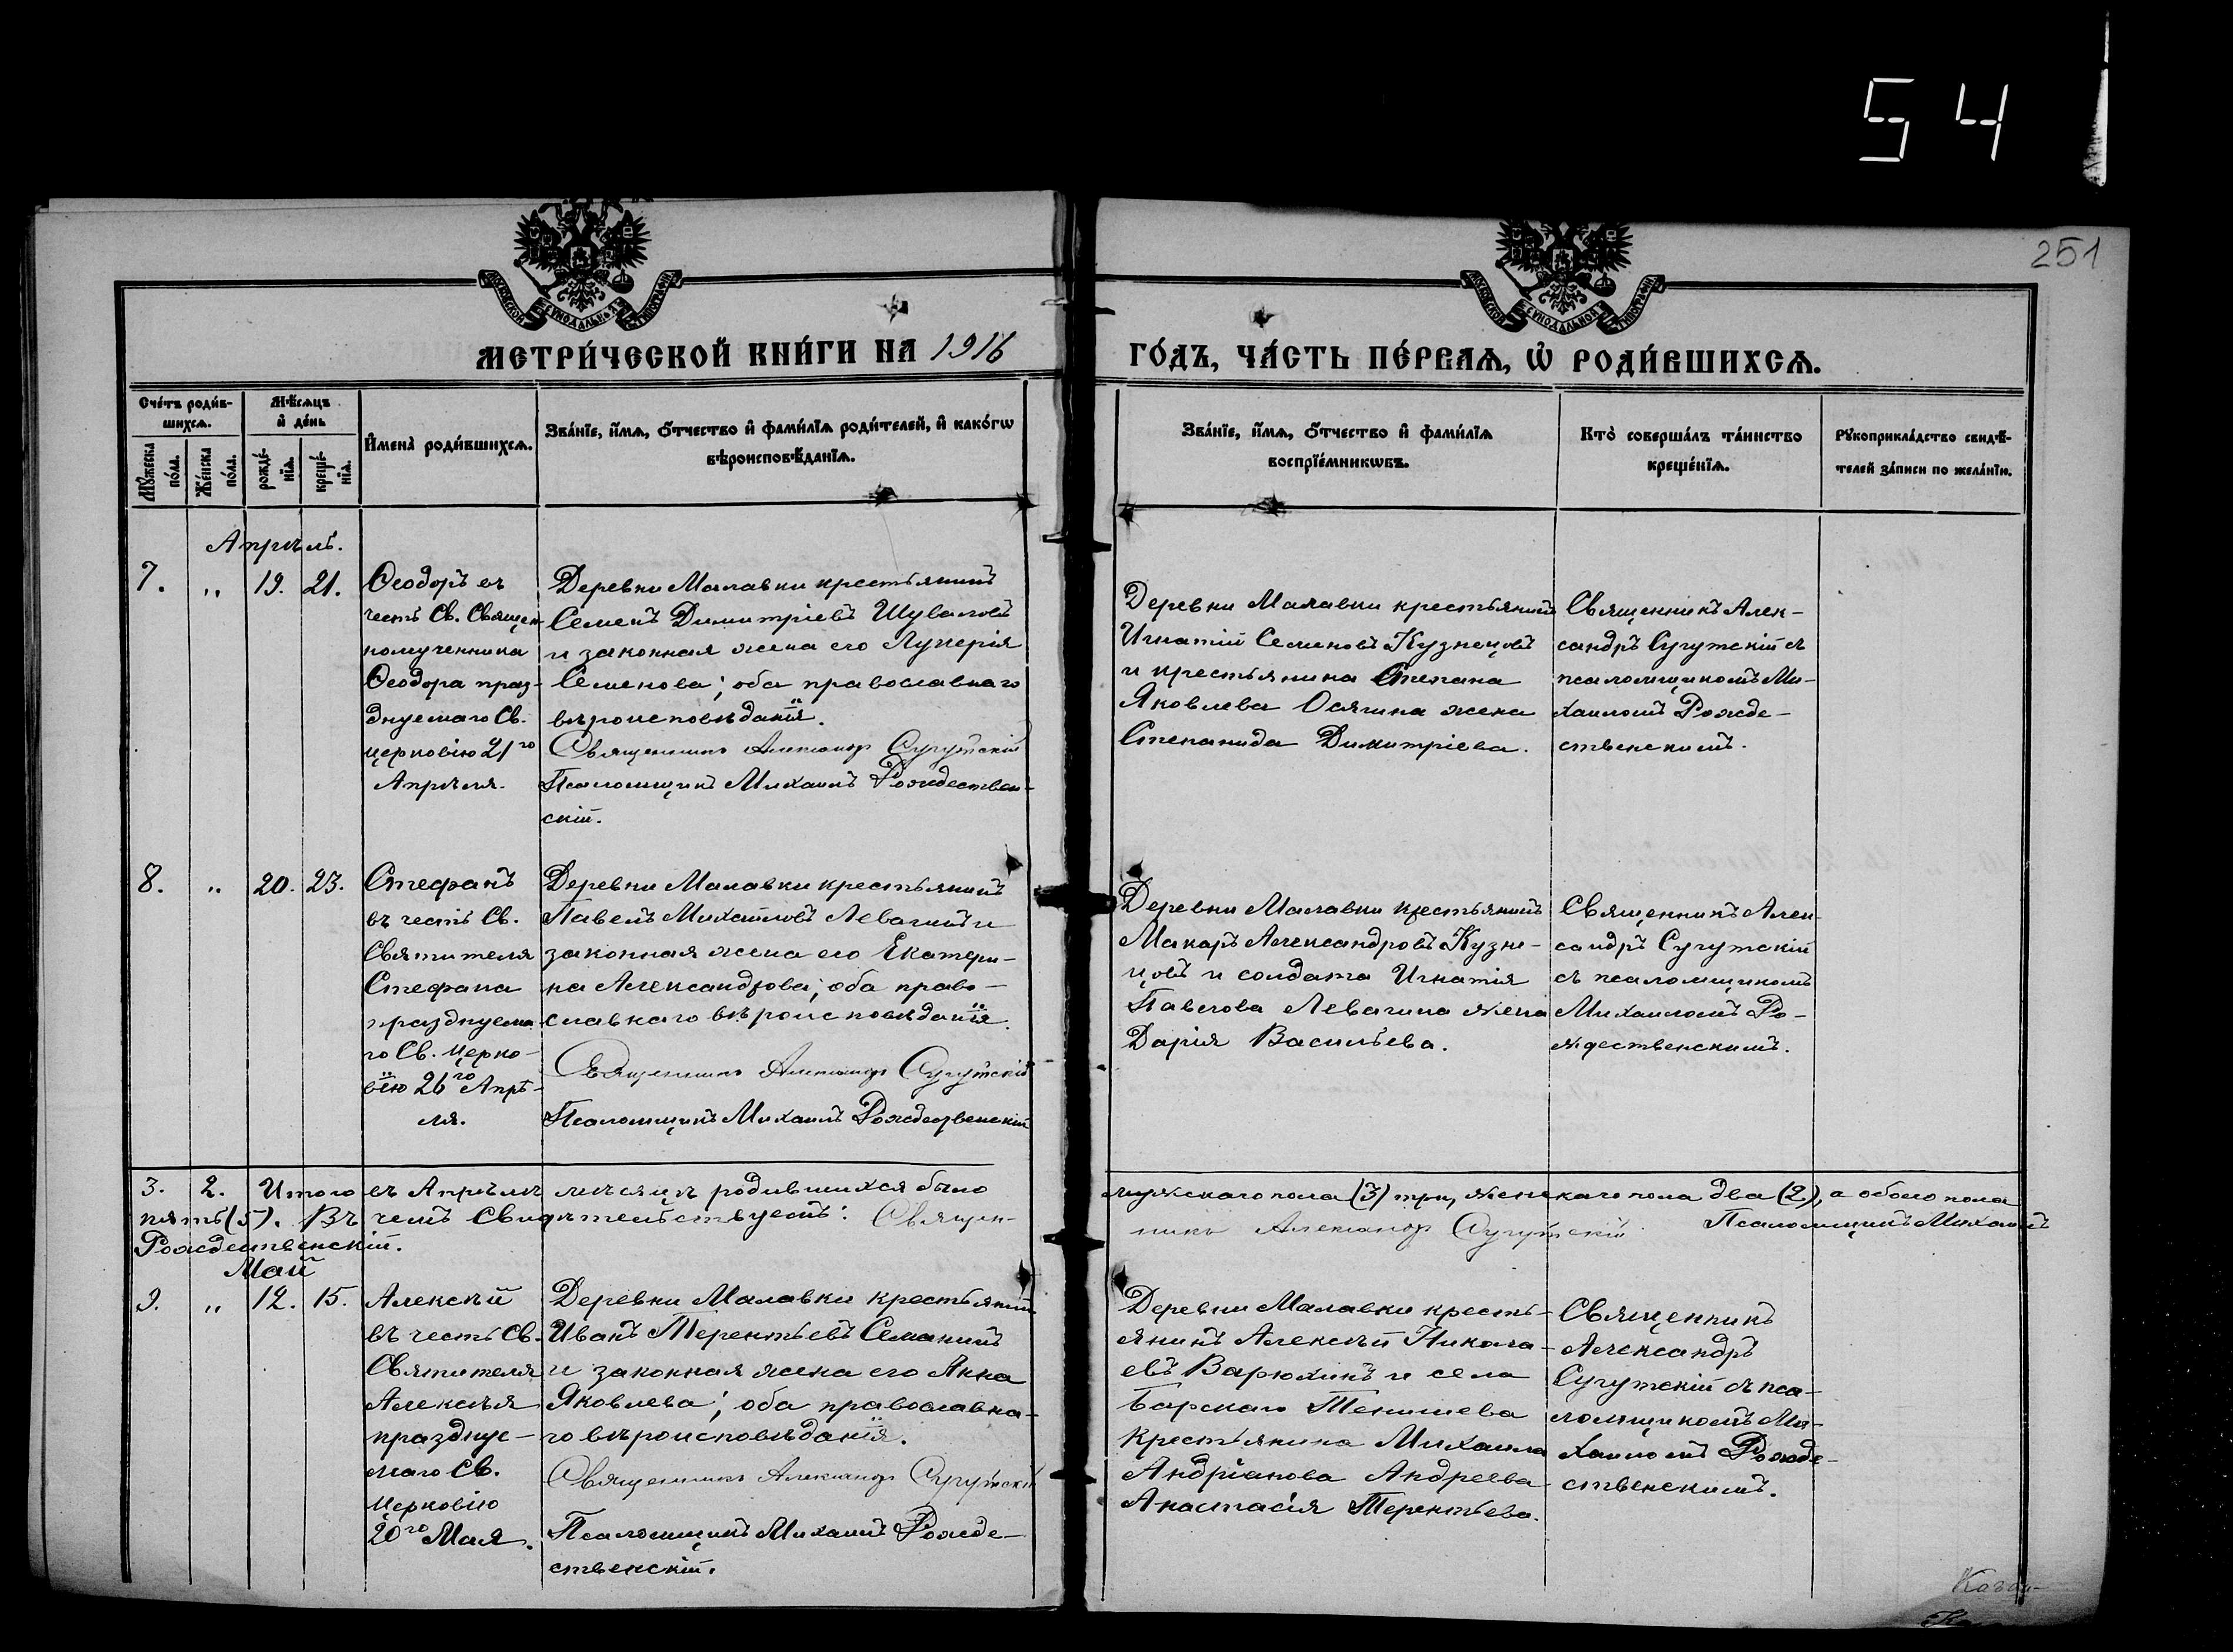 54
251
МОСКОВСКОЙ СѴНОДАЛЬНОЙ ТИПОГРАФІИ
МОСКОВСКОЙ СѴНОДАЛЬНОЙ ТИПОГРАФІИ
МЕТРИ́ЧЕСКОЙ КНИ́ГИ НА 1916
ГО́ДЪ, ЧА́СТЬ ПЕ́РВАѦ, Ѡ҆ РОДИ́ВШИХСѦ.
Сче́тъ роди́в-
шихсѧ.
Мѣ́сѧцъ
и҆ де́нь
Мꙋ́жеска
по́ла.
Же́нска
по́ла.
рожде́-
нїѧ.
креще́-
нїѧ.
И҆мена̀ роди́вшихсѧ.
Зва́нїе, и҆́мѧ, ѻ҆́тчество и҆ фами́лїѧ роди́телей, и҆ како́гѡ
вѣроисповѣ́данїѧ.
Зва́нїе, и҆́мѧ, ѻ҆́тчество и҆ фами́лїѧ
воспрїе́мникѡвъ.
Кто̀ соверша́лъ та́инство
креще́нїѧ.
Рꙋкоприкла́дство свидѣ́-
телей за́писи по жела́нїю.
Апрѣль.
7. " 19. 21.
Ѳеодоръ въ
честь Св. Священ-
номученника
Ѳеодора праз-
днуемаго Св.
церковію 21го
Апрѣля.
Деревни Малавки крестьянинъ
Семенъ Димитріевъ Шуваловъ
и законная жена его Лукерія
Семенова; оба православнаго
вѣроисповѣданія.
Священникъ Александръ Сугутскій
Псаломщикъ Михаилъ Рождествен-
скій.
Деревни Малавки крестьянинъ
Игнатій Семеновъ Кузнецовъ
и крестьянина Степана
Яковлева Осягина жена
Степанида Димитріева.
Священникъ Алек-
сандръ Сугутскій съ
псаломщикомъ Ми-
хаиломъ Рожде-
ственскимъ.
8. " 20. 23.
Стефанъ
въ честь Св.
Святителя
Стефана
празднуема
го Св. Церко-
вію 26го Апрѣ-
ля.
Деревни Малавки крестьянинъ
Павелъ Михайловъ Левагинъ и
законная жена его Екатери-
на Александрова; оба право-
славнаго вѣроисповѣданія.
Священникъ Александръ Сугутскій
Псаломщикъ Михаилъ Рождественскій
Деревни Малавки крестьянинъ
Макаръ Александровъ Кузне-
цовъ и солдата Игнатія
Павлова Левагина жена
Дарія Васильева.
Священникъ Алек-
сандръ Сугутскій
съ псаломщикомъ
Михаиломъ Ро-
ждественскимъ.
3. 2. Итого въ Апрѣлѣ мѣсяцѣ родившихся было
мужскаго пола (3) три, женскаго пола два (2), а обоего пола
пять (5). Въ чемъ свидѣтельствуемъ: Священ-
никъ Александръ Сугутскій Псаломщикъ Михаилъ
Рождественскій.
Май
9. " 12. 15.
Алексѣй
въ честь Св.
Святителя
Алексѣя
празднуе-
маго Св.
Церковію
20го Мая.
Деревни Малавки крестьянинъ
Иванъ Терентьевъ Семанинъ
и законная жена его Анна
Яковлева; оба православна-
го вѣроисповѣданія.
Священникъ Александръ Сугутскій
Псаломщикъ Михаилъ Рожде-
ственскій.
Деревни Малавки кресть-
янинъ Алексѣй Никола-
евъ Варюхинъ и села
Барскаго Тенишева
крестьянина Михаила
Андріанова Андреева
Анастасія Терентьева.
Священникъ
Александръ
Сугутскій съ пса-
ломщикомъ Ми-
хаиломъ Рожде-
ственскимъ.